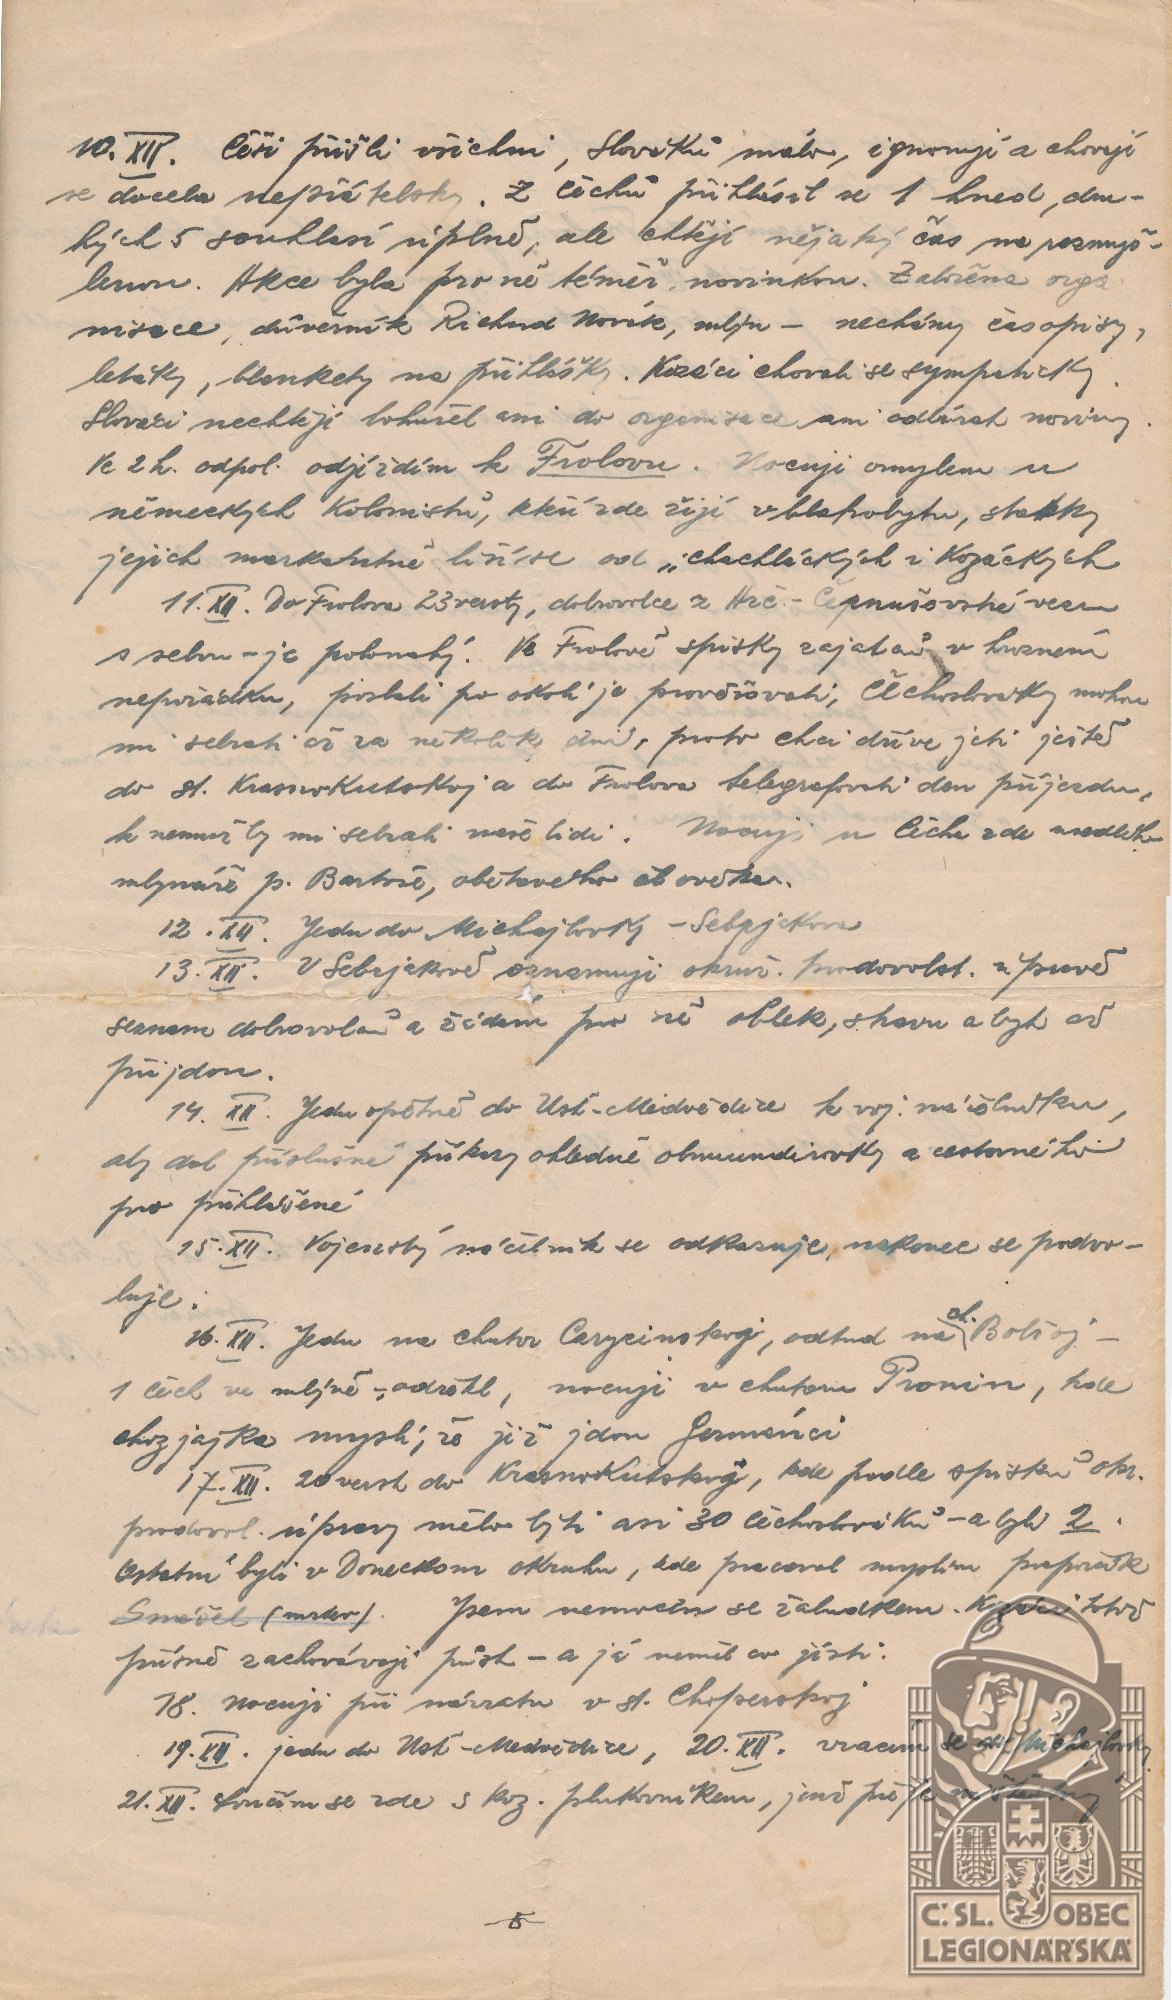 10. XII. Češi přišli všichni, Slováků málo, ignorují a chovají
se docela nepřátelsky. Z Čechů přihlásil se 1 hned, dru-
hých 5 souhlasí úplně, ale chtějí nějaký čas na rozmyš-
lenou. Akce byla pro ně téměř novinkou. Založena orga
nisace, důvěrník Richard Novák, mlýn - nechány časopisy,
letáky, blankety na přihlášky. Kozáci chovali se sympaticky.
Slováci nechtějí bohužel ani do organisace ani odbírat noviny.
Ve 2 h. odpol. odjíždím k Frolovu. Nocuji omylem u
německých kolonistů, kteří zde žijí v blahobytu, statky
jejich markantně liší se od „chachláckých i kozáckých
11. XII. Do Frolova 23 versty, dobrovolce z vezu
s sebou - je polonahý. Ve Frolově spisky zajatců v hrozném
nepořádku, poslali po okolí je prověřovati, Čechoslováky mohou
mi sebrati až za několik dní, proto chci dříve jeti ještě
do st. Krasnokutskoj a do Frolova telegrafovati den příjezdu,
k němuž by mi sebrali naše lidi. Nocuji u Čecha zde usedlého
mlynáře p. Bartoše, obětavého člověka.
12. XII. Jedu do Michajlovky - Sebrjakova
13. XII. V Sebrjakově oznamuji okruž. prodovolst. upravě
seznam dobrovolců a žádám pro ně oblek, stravu a byt až
přijdou.
14. XII. Jedu opětně do Usť-Medvědice k voj. náčelníku,
aby dal příslušné příkazy ohledně obmundirovky a cestovného
pro přihlášené
15. XII. Vojenský náčelník se odkazuje, nakonec se podvo-
luje.
16. XII. Jedu na chutor Carycinskoj, odtud na ch. Bolšoj -
1 Čech ve mlýně - odřekl, nocuji v chutoru Pronin, kde
chozjajka myslí, že již jdou Germánci
17. XII. 20 verst do Krasnokutskoj, kde podle spisků okr.
prodovol. úpravy mělo býti asi 30 Čechoslováků - a byli 2.
Ostatní byli v Doneckom okruhu, kde pracoval myslím praporčík
(mrtev). Jsem nemocen se žaludkem. Kozáci totiž
přísně zachovávají půst - a já neměl co jísti.
18. Nocuji při návratu v st. Choperskoj
19. XII. jedu do Usť-Medvědice, 20. XII. vracím se do Michajlovky
21. XII. Loučím se zde s koz. plukovníkem, jenž přeje
5
Č. SL. OBEC
LEGIONÁŘSKÁ